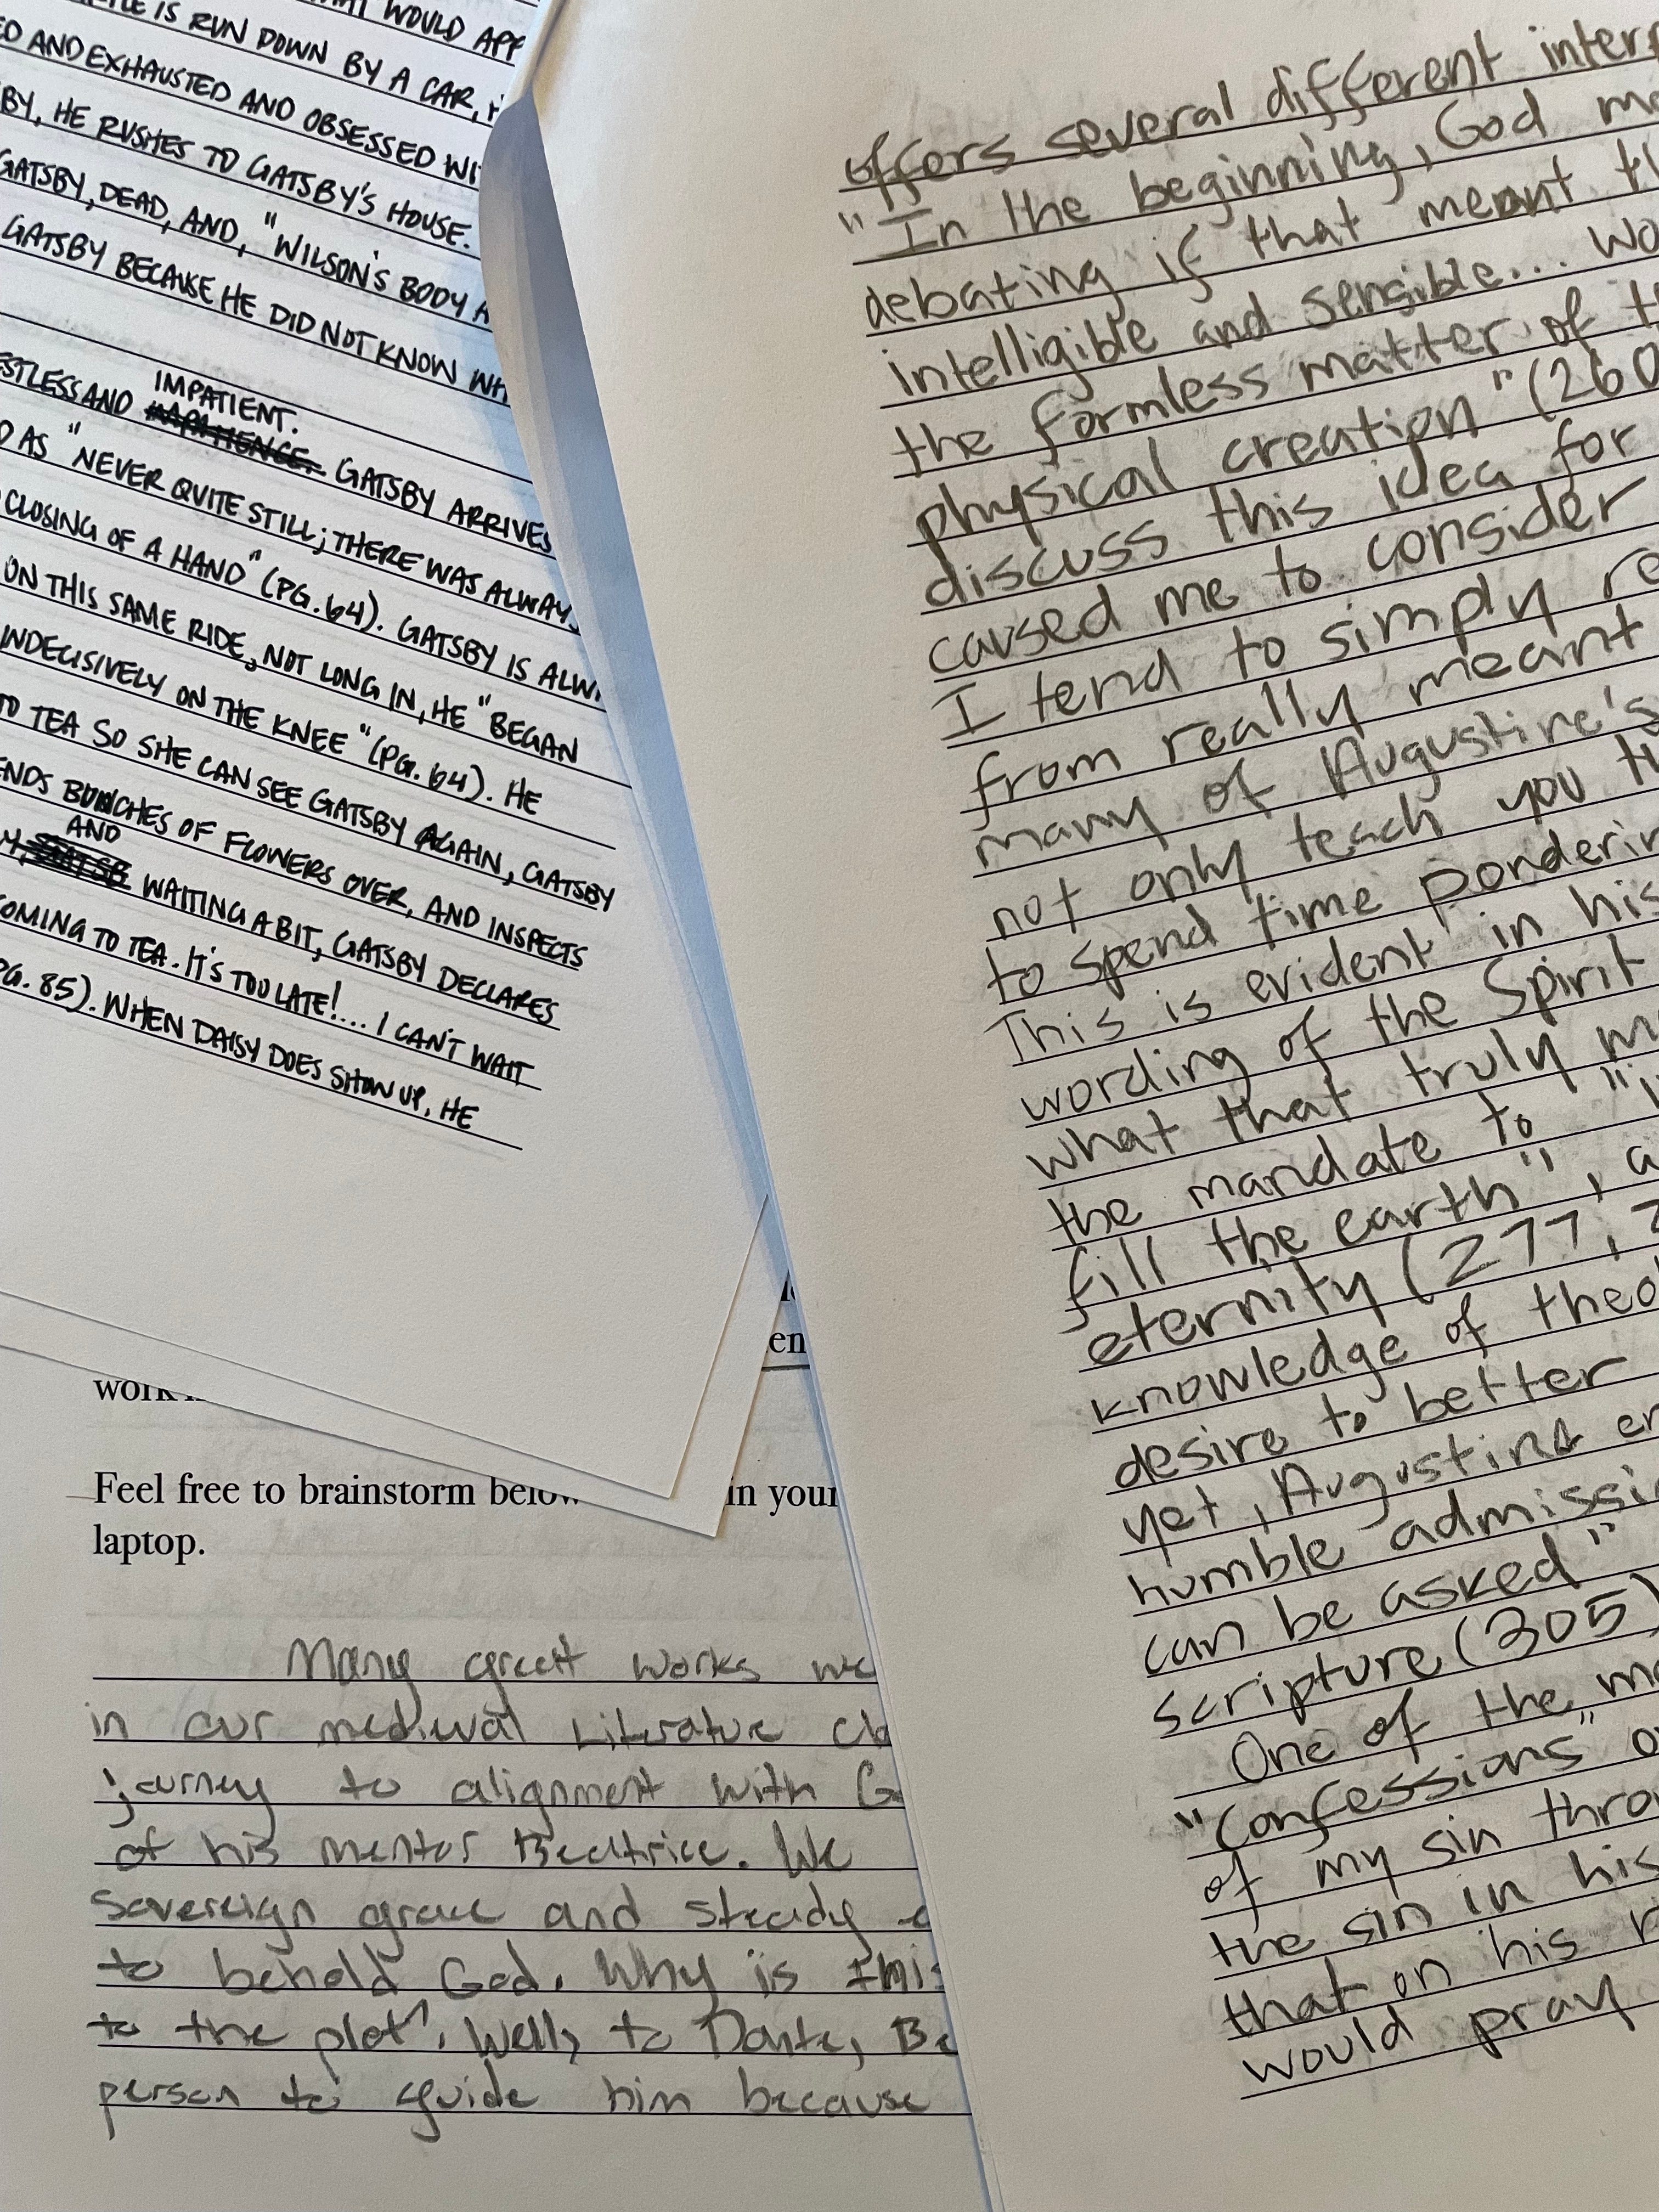 WOULD APP
IS RUN DOWN BY A CAR,
AND EXHAUSTED AND OBSESSED WI
BY, HE RUSHES TO GATSBY'S HOUSE.
GATSBY, DEAD, AND, "WILSON'S BODY A
GATSBY BECAUSE HE DID NOT KNOW WH
STLESS AND IMPATIENT. GATSBY ARRIVES
D AS "NEVER QUITE STILL; THERE WAS ALWAYS
CLOSING OF A HAND" (PG. 64). GATSBY IS ALWA
ON THIS SAME RIDE, NOT LONG IN, HE "BEGAN
INDECISIVELY ON THE KNEE" (PG. 64). HE
TO TEA SO SHE CAN SEE GATSBY AGAIN, GATSBY
ENDS BUNCHES OF FLOWERS OVER, AND INSPECTS
AND WAITING A BIT, GATSBY DECLARES
COMING TO TEA. IT'S TOO LATE!... I CAN'T WAIT
PG. 85). WHEN DAISY DOES SHOW UP, HE
en
work
Feel free to brainstorm below in your
laptop.
Many great works we
in our medieval Literature cla
journey to alignment with G
of his mentor Beatrice. We
sovereign grace and steady
to behold God. Why is this
to the plot? Well, to Dante, Be
person to guide him because
offers several different interp
"In the beginning, God ma
debating if that meant th
intelligible and sensible... wo
the formless matter of th
physical creation" (260
discuss this idea for
caused me to consider
I tend to simply re
from really meant
many of Augustine's
not only teach you th
to spend time ponderin
This is evident in his
wording of the Spirit
what that truly m
the mandate to "i
fill the earth", a
eternity (277, 2
knowledge of theo
desire to better
yet, Augustine en
humble admissi
can be asked"
scripture (305)
One of the mo
"Confessions" o
of my sin thro
the sin in his
that on his
would pray